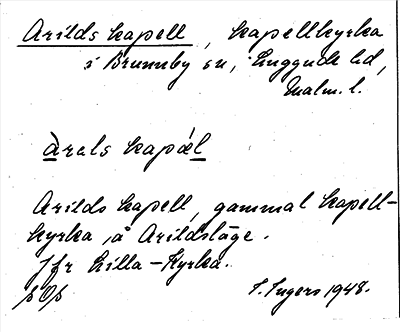 Arilds kapell, kapellkyrka
i Brunnby sn, Luggude hd,
Malm. l.
àrals kapæ̀l
Arilds kapell, gammal kapell-
kyrka å Arildsläge.
Jfr Lilla-Kyrka.
S. Ingers 1948.